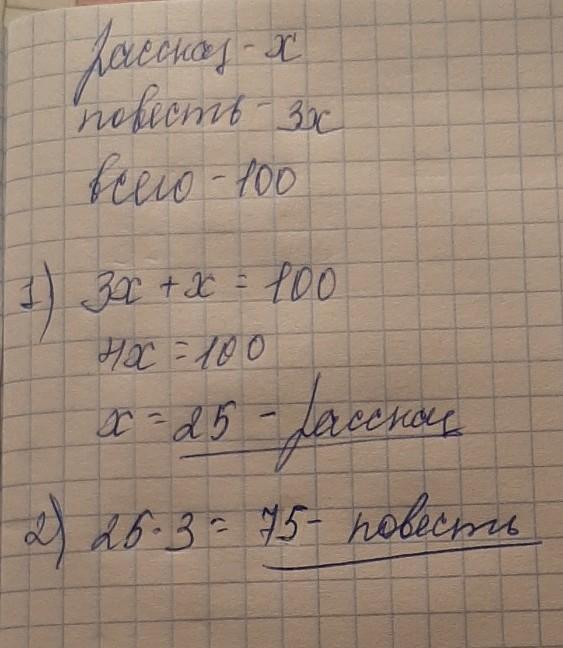 рассказ - x
повесть - 3x
всего - 100
1) 3x + x = 100
4x = 100
x = 25 - рассказ
2) 25 · 3 = 75 - повесть